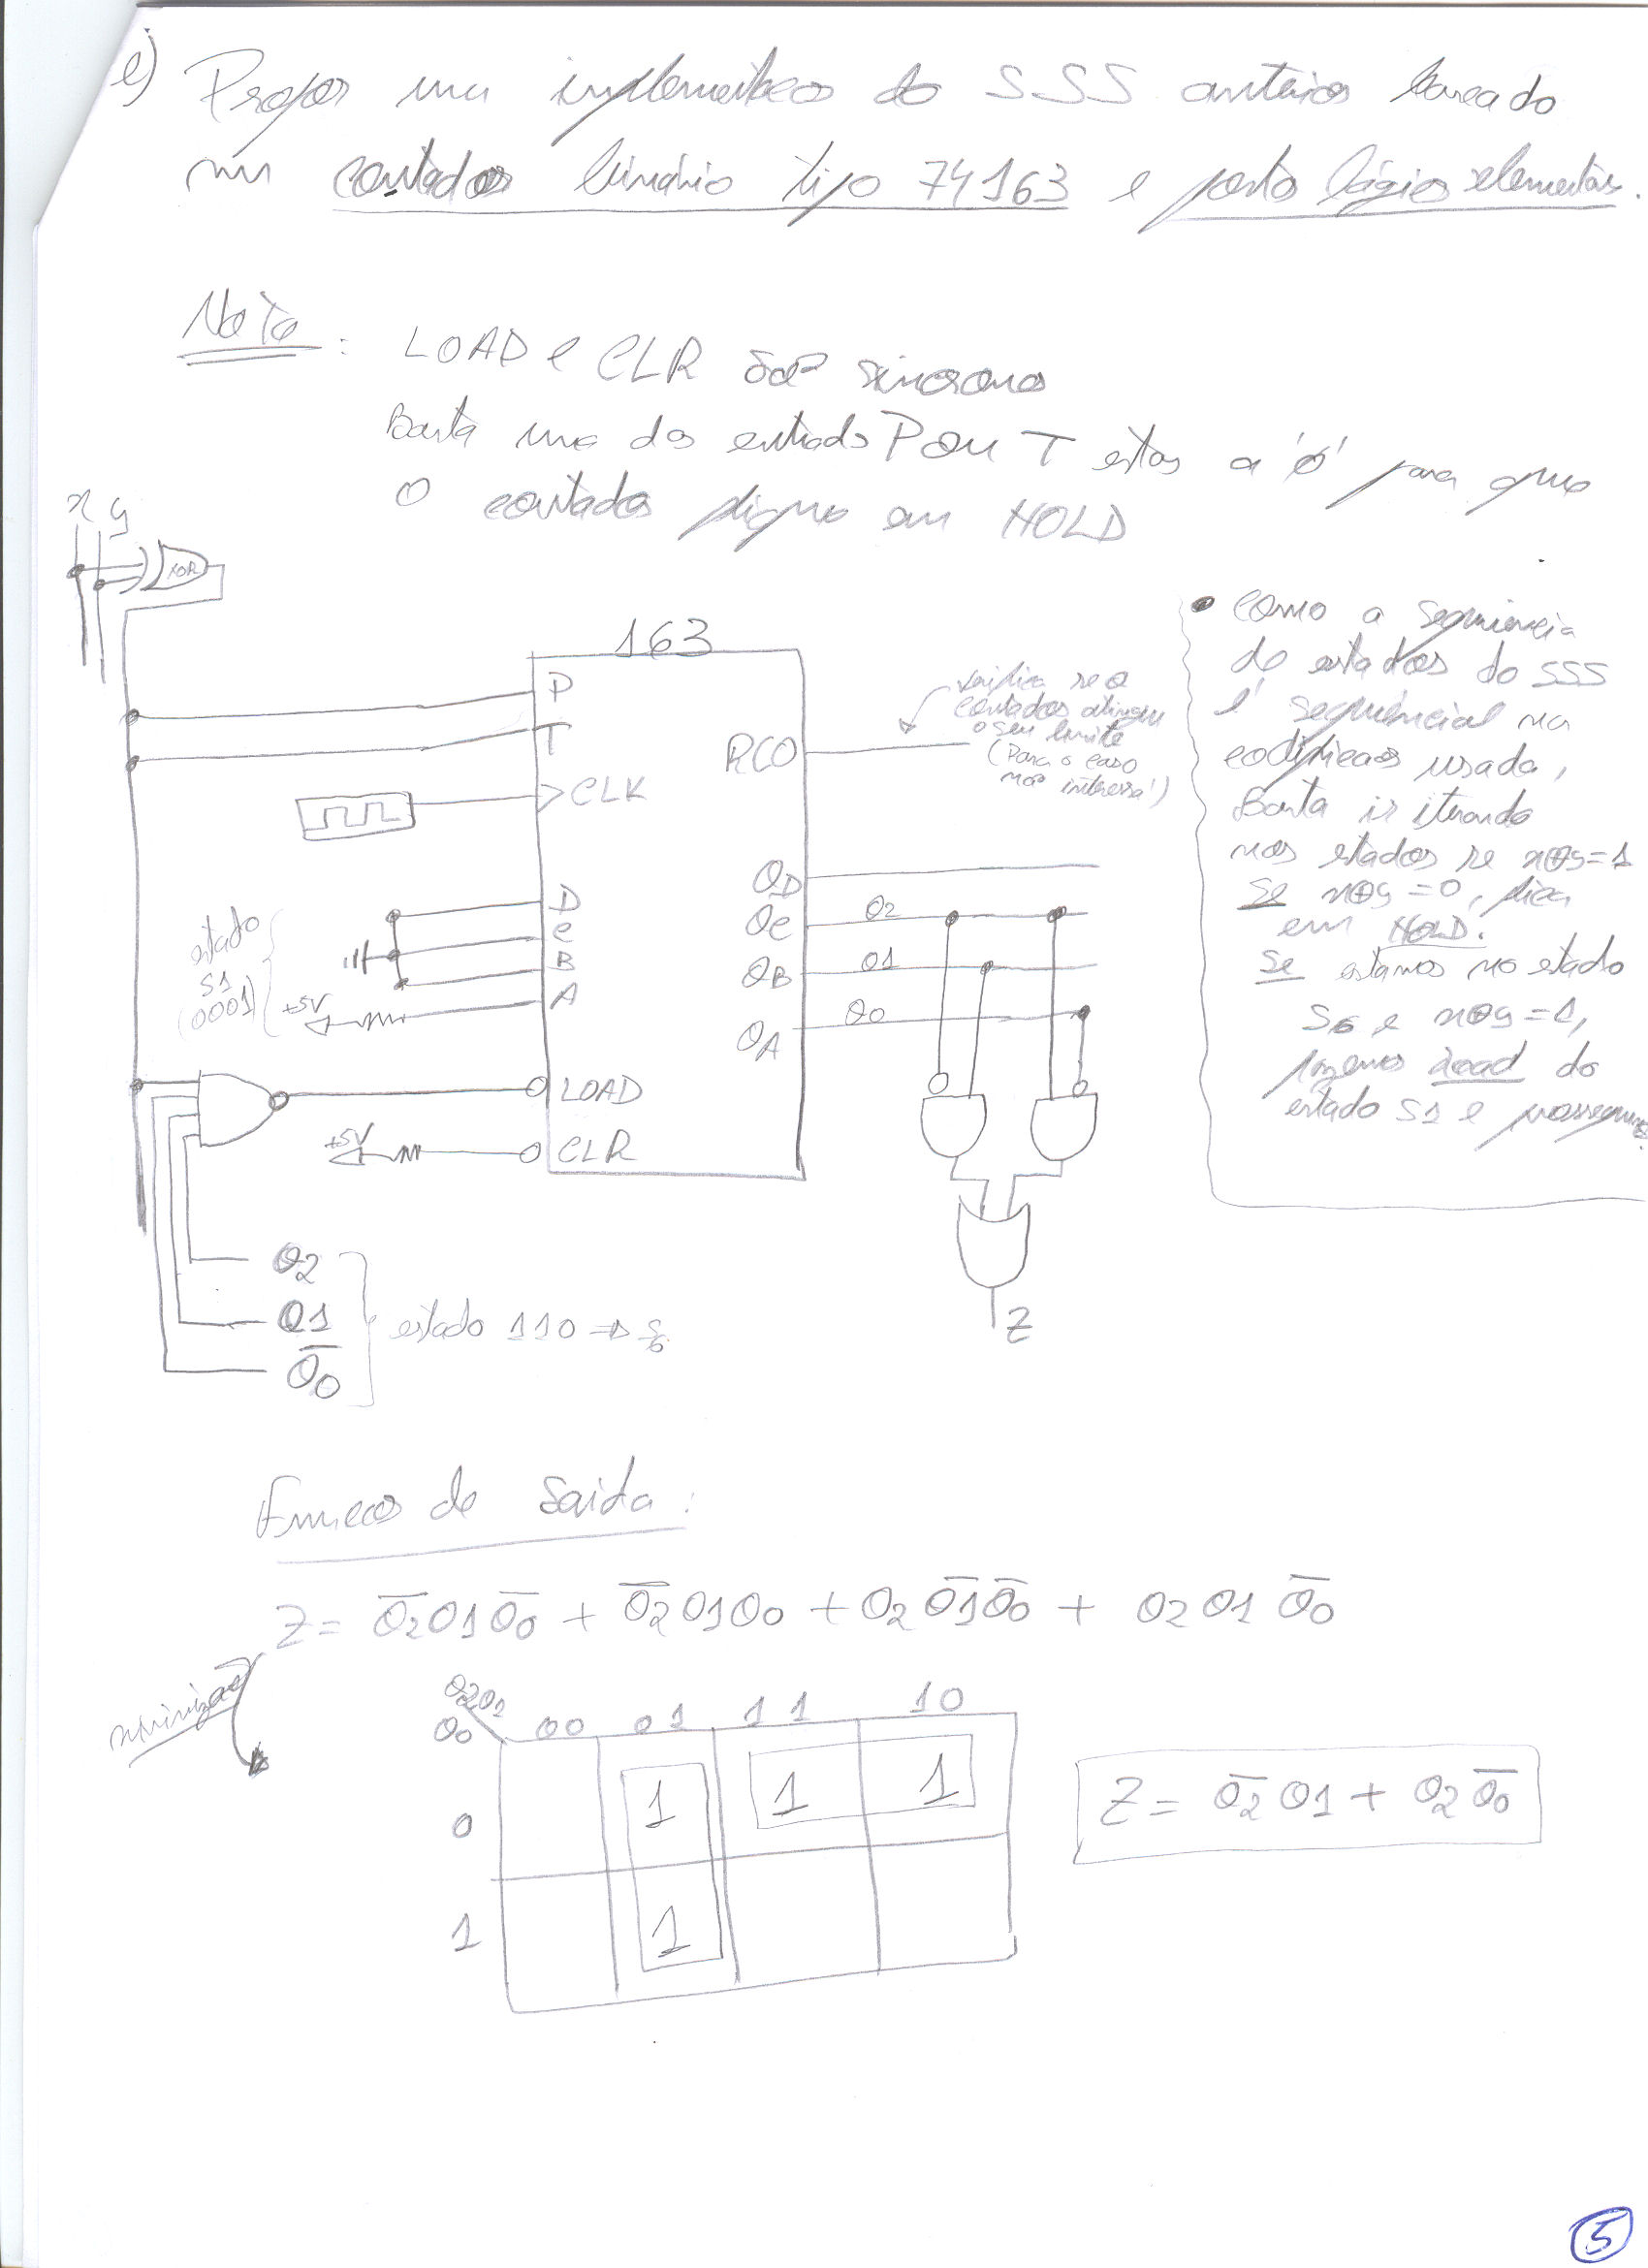 e) Propor uma implementação do SSS anterior baseado
num contador binário tipo 74163 e portas lógicas elementares.
Nota: LOAD e CLR são síncronos
Basta uma das entradas P ou T estar a '0' para que
o contador fique em HOLD
x y
XOR
163
P
T
CLK
RCO
verifica se o
contador atingiu
o seu limite
(Para o caso
não interessa!)
D
C
B
A
estado
S1
(0001)
+5V
QD
QC
QB
QA
Q2
Q1
Q0
LOAD
CLR
+5V
• Como a sequência
de estados do SSS
é sequêncial na
codificação usada,
Basta ir iterando
nos estados se x⊕y=1
Se x⊕y=0, fica
em HOLD.
Se estamos no estado
S6 e x⊕y=1,
fazemos Load do
estado S1 e prosseguimos.
Z
Q2
Q1
Q̅0
estado 110 ⇒ S6
Função de Saída:
Z = Q̅2Q1Q̅0 + Q̅2Q1Q0 + Q2Q̅1Q̅0 + Q2Q1Q̅0
minimização
Q2Q1
Q0
00 01 11 10
0 1 1 1
1 1
Z = Q̅2Q1 + Q2Q̅0
5